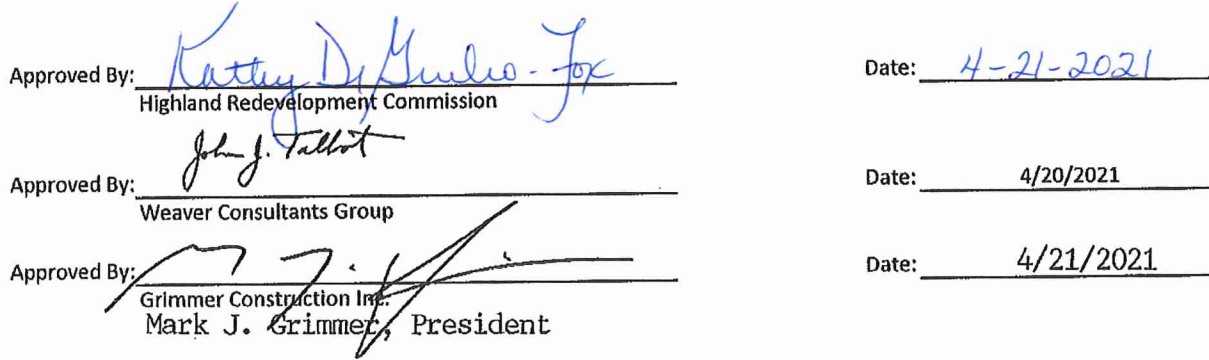 Approved By: Kathy DeGiulio-Fox Date: 4-21-2021
Highland Redevelopment Commission
John J. Talbot
Approved By: Date: 4/20/2021
Weaver Consultants Group
Approved By: Date: 4/21/2021
Grimmer Construction Inc.
Mark J. Grimmer, President